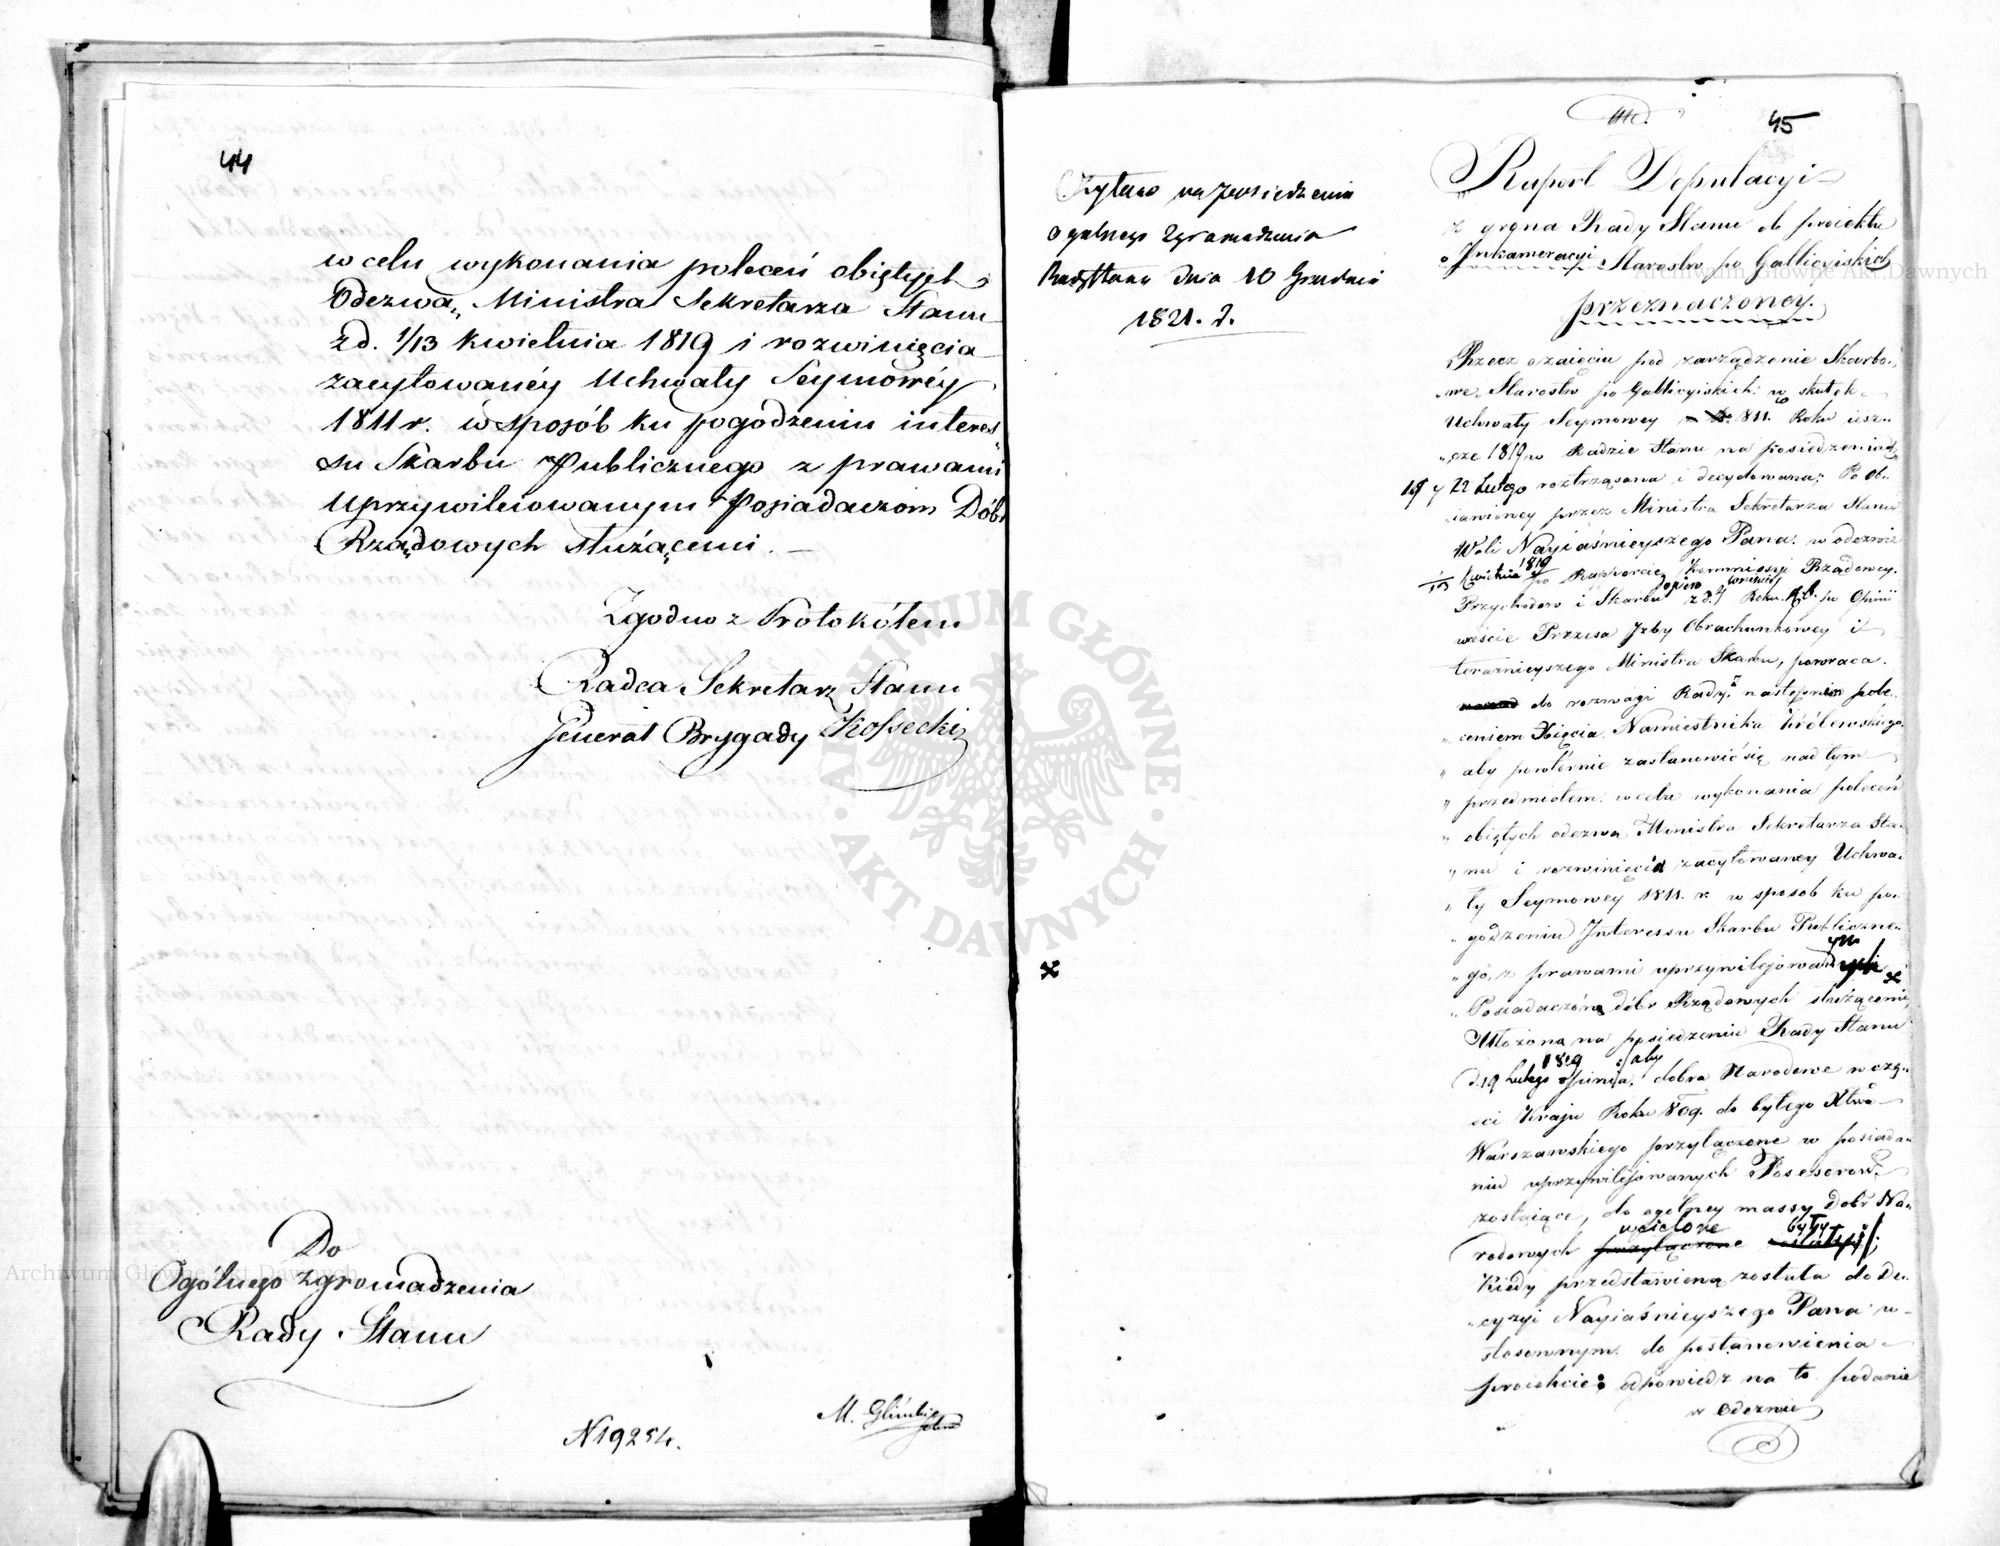 44
w celu wykonania poleceń obiętych
Odezwą Ministra Sekretarza Stanu
z d. 1/13 Kwietnia 1819 i rozwinięcia
zacytowanéy Uchwały Seymowéy
1811 r. w sposób ku pogodzeniu interes„
su Skarbu Publicznego z prawami
Uprzywileiowanym Posiadaczom Dóbr
Rządowych służącemi. —
Zgodno z Protokółem
Radca Sekretarz Stanu
Generał Brygady Kossecki
Do
Ogólnego zgromadzenia
Rady Stanu
N 19254.
M. Gliński
45
Czytano na posiedzeniu
ogólnego Zgromadzenia
Rady Stanu dnia 10 Grudnia
1821. r.
Raport Deputacyi
z grona Rady Stanu do proiektu
o Inkameracyi Starostw po Gallicyiskich
przeznaczoney.
Rzecz o zaięciu pod zarządzenie Skarbo„
„we Starostw po Gallicyiskich w skutek
Uchwały Seymowey 811. Roku iesz„
„cze 1819 w Radzie Stanu na posiedzeniach
19 y 22 Lutego roztrząsana i decydowana; Po ob„
iawioney przez Ministra Sekretarza Stanu
Woli Nayiaśnieyszego Pana w odezwie
1/13 Kwietnia 1819 po Raporcie Kommissyi Rządowey
Przychodow i Skarbu dopiero z d. 7 Roku po Opinii
weście Prezesa Izby Obrachunkowey i
teraznieyszego Ministra Skarbu, powraca
do rozwagi Rady z następnem pole„
„ceniem Xięcia Namiestnika Królewskiego
„ aby powtórnie zastanowić się nad tym
„ przedmiotem w celu wykonania poleceń
„ obiętych odezwą Ministra Sekretarza Sta„
„ nu i rozwinięcia zacytowaney Uchwa„
„ ły Seymowey 1811. r. w sposob ku po„
„ godzeniu Interessu Skarbu Publiczne„
„ go, z prawami uprzywilejowanym
„ Posiadaczóm dóbr Rządowych służącemi,
Ułożona na posiedzeniu Rady Stanu
d. 19 Lutego 1819 opinija, aby dobra Narodowe w czę„
ści Kraju Roku 809. do byłego Xtwa
Warszawskiego przyłączone w posiada„
niu uprzywilejowanych Posesorow
zostaiące, do ogólney massy Dobr Na„
rodowych wcielone były;
przyłączone zostały
Kiedy przedstawioną została do De„
„cyzyi Nayiaśnieyszego Pana w
stosownym do postanowienia
proiekcie; odpowiedz na to podanie
w Odezwie